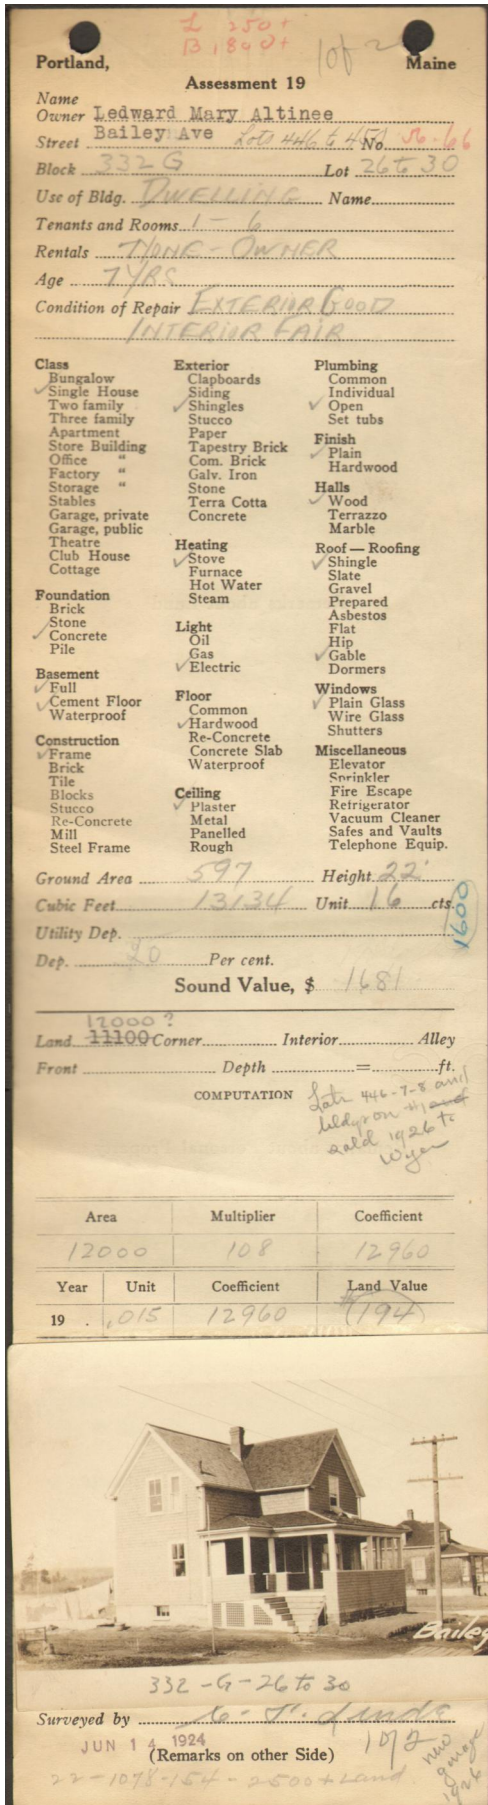 L 250+
B 1800+
1 of 2
Portland, Maine
Assessment 19
Name
Owner Ledward Mary Altinee
Street Bailey Ave Lots 446 to 450 No. 56-66
Block 332 G Lot 26 to 30
Use of Bldg. DWELLING Name
Tenants and Rooms 1 - 6
Rentals NONE - OWNER
Age 7 YRS
Condition of Repair EXTERIOR GOOD
INTERIOR FAIR
Class
Bungalow
✓Single House
Two family
Three family
Apartment
Store Building
Office "
Factory "
Storage "
Stables
Garage, private
Garage, public
Theatre
Club House
Cottage
Foundation
Brick
Stone
✓Concrete
Pile
Basement
✓Full
✓Cement Floor
Waterproof
Construction
✓Frame
Brick
Tile
Blocks
Stucco
Re-Concrete
Mill
Steel Frame
Exterior
Clapboards
Siding
✓Shingles
Stucco
Paper
Tapestry Brick
Com. Brick
Galv. Iron
Stone
Terra Cotta
Concrete
Heating
✓Stove
Furnace
Hot Water
Steam
Light
Oil
Gas
✓Electric
Floor
Common
✓Hardwood
Re-Concrete
Concrete Slab
Waterproof
Ceiling
✓Plaster
Metal
Panelled
Rough
Plumbing
Common
Individual
✓Open
Set tubs
Finish
✓Plain
Hardwood
Halls
✓Wood
Terrazzo
Marble
Roof — Roofing
✓Shingle
Slate
Gravel
Prepared
Asbestos
Flat
Hip
✓Gable
Dormers
Windows
✓Plain Glass
Wire Glass
Shutters
Miscellaneous
Elevator
Sprinkler
Fire Escape
Refrigerator
Vacuum Cleaner
Safes and Vaults
Telephone Equip.
Ground Area 597 Height 22'
Cubic Feet 13134 Unit 16 cts.
1600
Utility Dep.
Dep. 20 Per cent.
Sound Value, $ 1681
12000 ?
Land 11100 Corner Interior Alley
Front Depth = ft.
COMPUTATION
Lots 446-7-8 and
bldgs on
sold 1926 to
Area Multiplier Coefficient
12000 108 12960
Year Unit Coefficient Land Value
19 . .015 12960 $194
Bailey
332-G-26 to 30
Surveyed by
JUN 14 1924
(Remarks on other Side)
1 of 2
new
garage
1926
22-1078-154-2500+Land